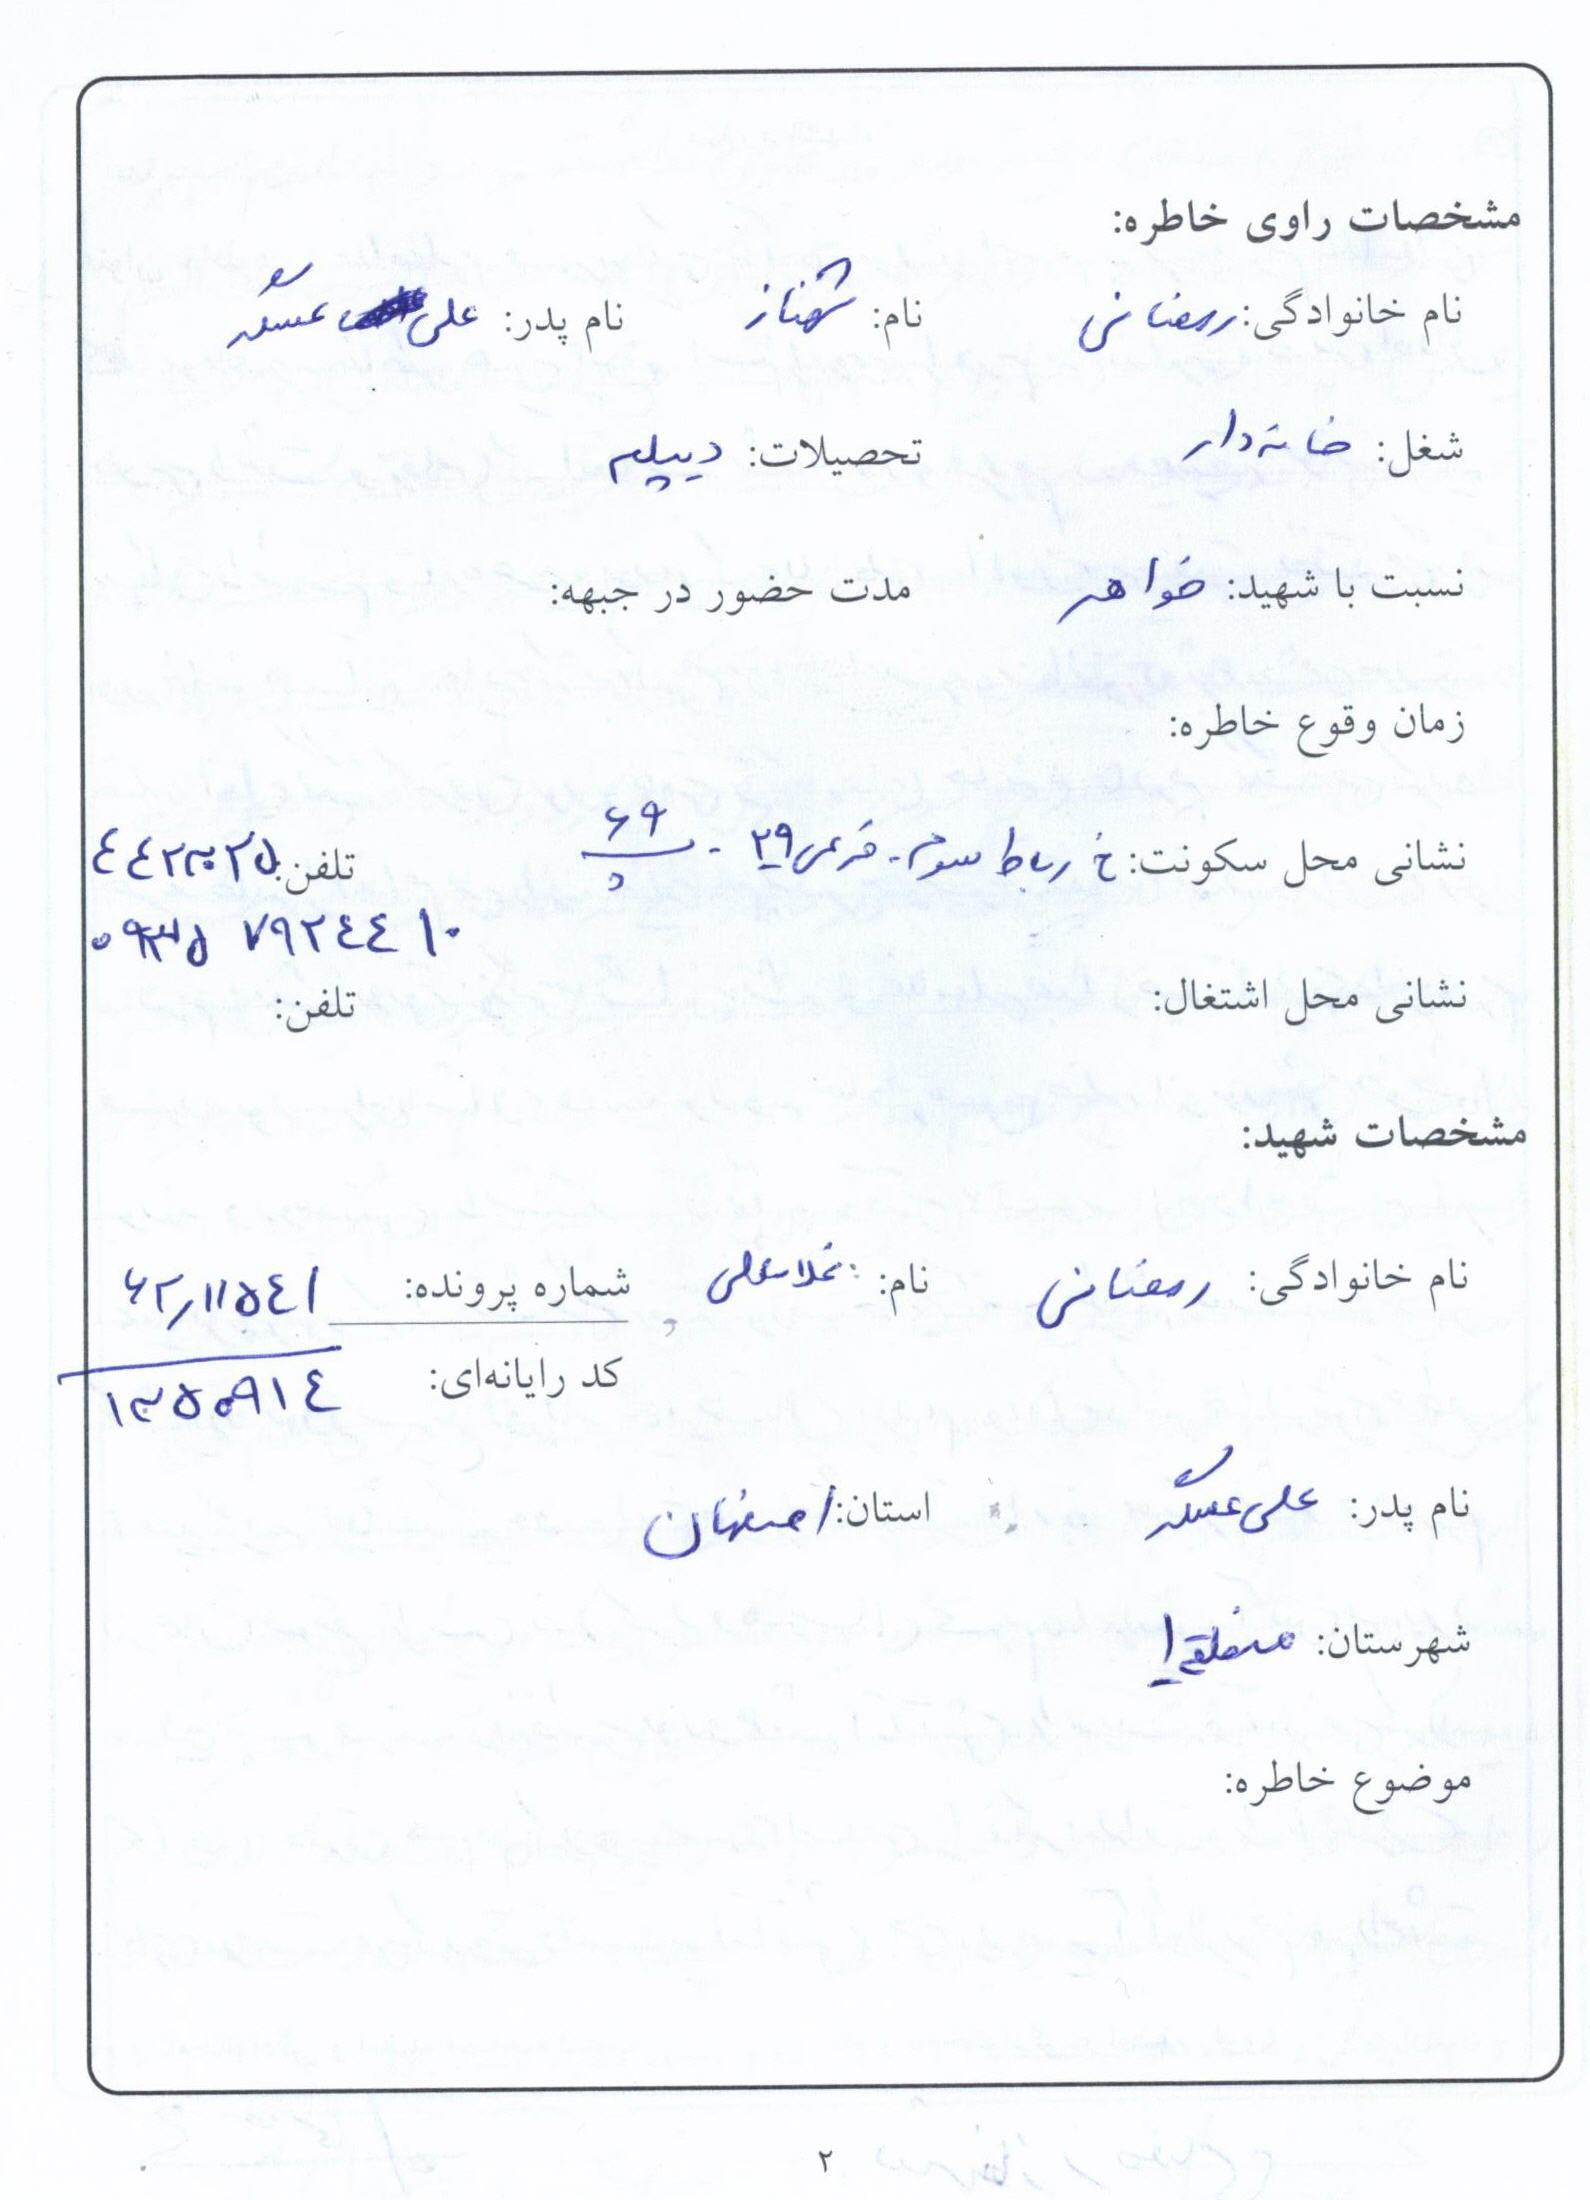 مشخصات راوی خاطره:
نام خانوادگی: رمضانی نام: شهناز نام پدر: علی عسگر
شغل: خانه دار تحصیلات: دیپلم
نسبت با شهید: خواهر مدت حضور در جبهه:
زمان وقوع خاطره:
نشانی محل سکونت: خ رباط سوم - فرعی ۲۹ - ۶۹ تلفن: ٤٤٢٣٠٢۵
۰۹۳۵ ۷۹۲٤٤۱۰
نشانی محل اشتغال: تلفن:
مشخصات شهید:
نام خانوادگی: رمضانی نام: غلامعلی شماره پرونده: ۶۲٫۱۱۵٤۱
کد رایانه‌ای: ۱۳۵۰۹۱٤
نام پدر: علی عسگر استان: اصفهان
شهرستان: منطقه ۱
موضوع خاطره:
۲